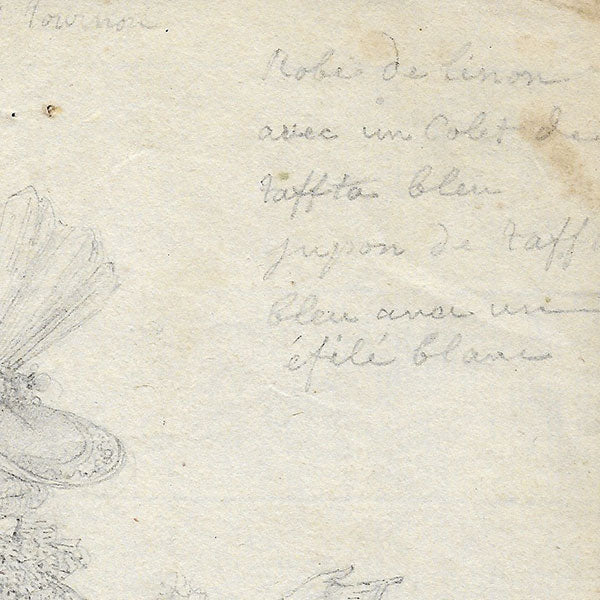 Tournon
Robe de linon
avec un Colet de
taffta bleu
jupon de taff
bleu avec un
éfilé blanc